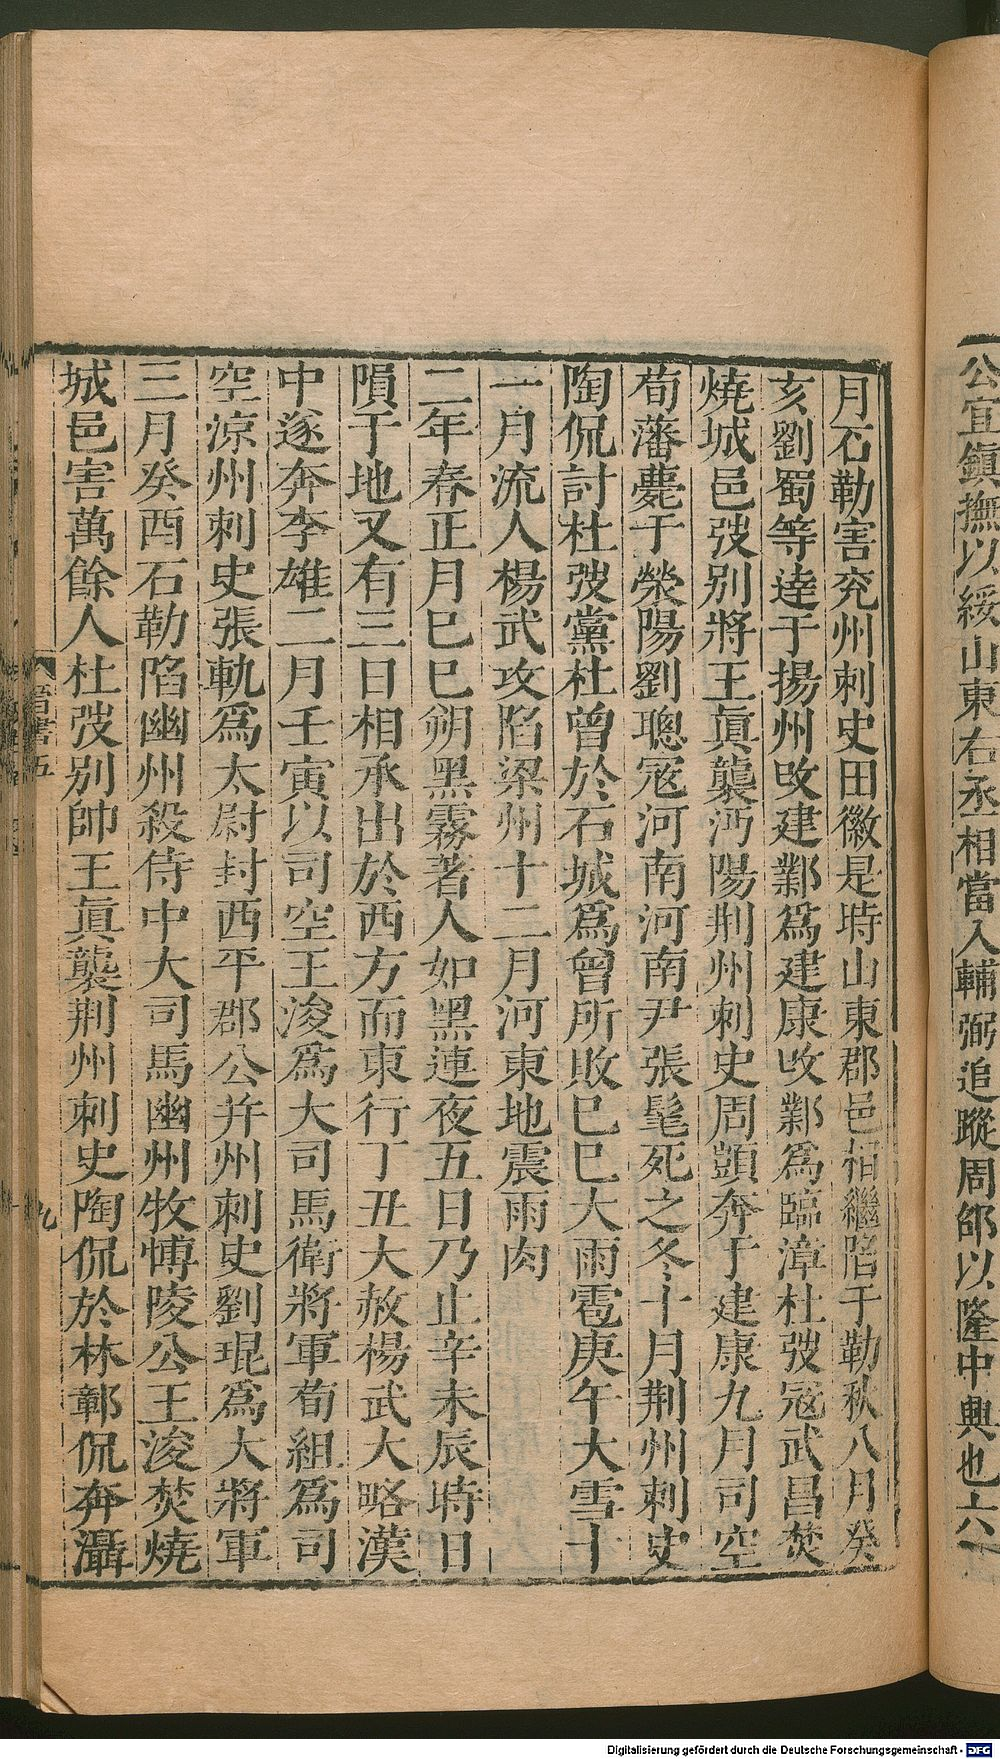 公宜鎮撫以綏山東右丞相當入輔弼追蹤周邵以隆中興也六
月石勒害兖州刺史田徽是時山東郡邑相繼陷于勒秋八月癸
亥劉蜀等達于揚州攺建鄴爲建康攺鄴爲臨漳杜弢宼武昌焚
燒城邑弢別將王眞襲沔陽荆州刺史周顗奔于建康九月司空
荀藩薨于滎陽劉聰宼河南河南尹張髦死之冬十月荆州刺史
陶侃討杜弢黨杜曾於石城爲曾所敗巳巳大雨雹庚午大雪十
一月流人楊武攻陷梁州十二月河東地震雨肉
二年春正月巳巳朔黑霧著人如黑連夜五日乃止辛未辰時日
隕于地又有三日相承出於西方而東行丁丑大赦楊武大略漢
中遂奔李雄二月壬寅以司空王浚爲大司馬衛將軍荀組爲司
空涼州刺史張軌爲太尉封西平郡公幷州刺史劉琨爲大將軍
三月癸酉石勒陷幽州殺侍中大司馬幽州牧愽陵公王浚焚燒
城邑害萬餘人杜弢別帥王眞襲荆州刺史陶侃於林鄣侃奔灄
晉書五
九
Digitalisierung gefördert durch die Deutsche Forschungsgemeinschaft - DFG